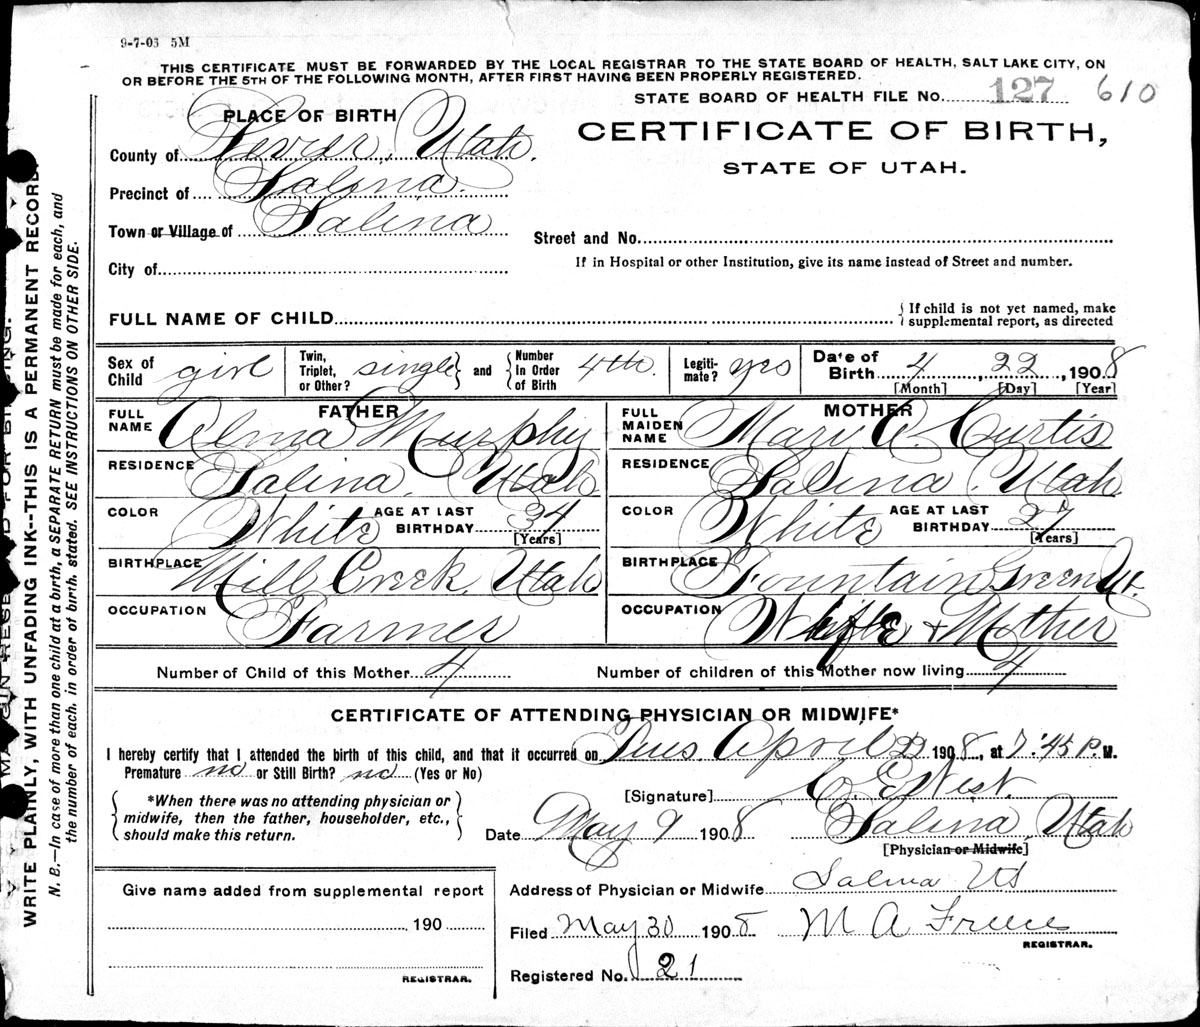 9-7-03 5M
THIS CERTIFICATE MUST BE FORWARDED BY THE LOCAL REGISTRAR TO THE STATE BOARD OF HEALTH, SALT LAKE CITY, ON
OR BEFORE THE 5TH OF THE FOLLOWING MONTH, AFTER FIRST HAVING BEEN PROPERLY REGISTERED.
STATE BOARD OF HEALTH FILE No. 127 610
PLACE OF BIRTH
CERTIFICATE OF BIRTH,
STATE OF UTAH.
County of Sevier, Utah.
Precinct of Salina.
Town or Village of Salina
Street and No.
City of
If in Hospital or other Institution, give its name instead of Street and number.
FULL NAME OF CHILD
If child is not yet named, make
supplemental report, as directed
Sex of Child girl
Twin, Triplet, or Other? single and Number In Order of Birth 4th.
Legiti-mate? yes
Date of Birth 4, 22, 1908
[Month] [Day] [Year]
FATHER
FULL NAME Alma Murphy
RESIDENCE Salina, Utah
COLOR White AGE AT LAST BIRTHDAY 34
[Years]
BIRTHPLACE Mill Creek Utah
OCCUPATION Farmer
MOTHER
FULL MAIDEN NAME Mary A. Curtis
RESIDENCE Salina, Utah
COLOR White AGE AT LAST BIRTHDAY 27
[Years]
BIRTHPLACE Fountain Green Ut.
OCCUPATION Wife & Mother
Number of Child of this Mother 4
Number of children of this Mother now living 4
CERTIFICATE OF ATTENDING PHYSICIAN OR MIDWIFE*
I hereby certify that I attended the birth of this child, and that it occurred on Tues April 22 1908, at 7:45 P. M.
Premature no or Still Birth? no (Yes or No)
*When there was no attending physician or
midwife, then the father, householder, etc.,
should make this return.
[Signature] C. E. West.
Date May 9 1908 Salina, Utah
[Physician or Midwife]
Give name added from supplemental report
190
REGISTRAR.
Address of Physician or Midwife Salina Ut
Filed May 30 1908 M A
REGISTRAR.
Registered No. 21
WRITE PLAINLY, WITH UNFADING INK--THIS IS A PERMANENT RECORD.
N. B.—In case of more than one child at a birth, a SEPARATE RETURN must be made for each, and
the number of each, in order of birth, stated. SEE INSTRUCTIONS ON OTHER SIDE.